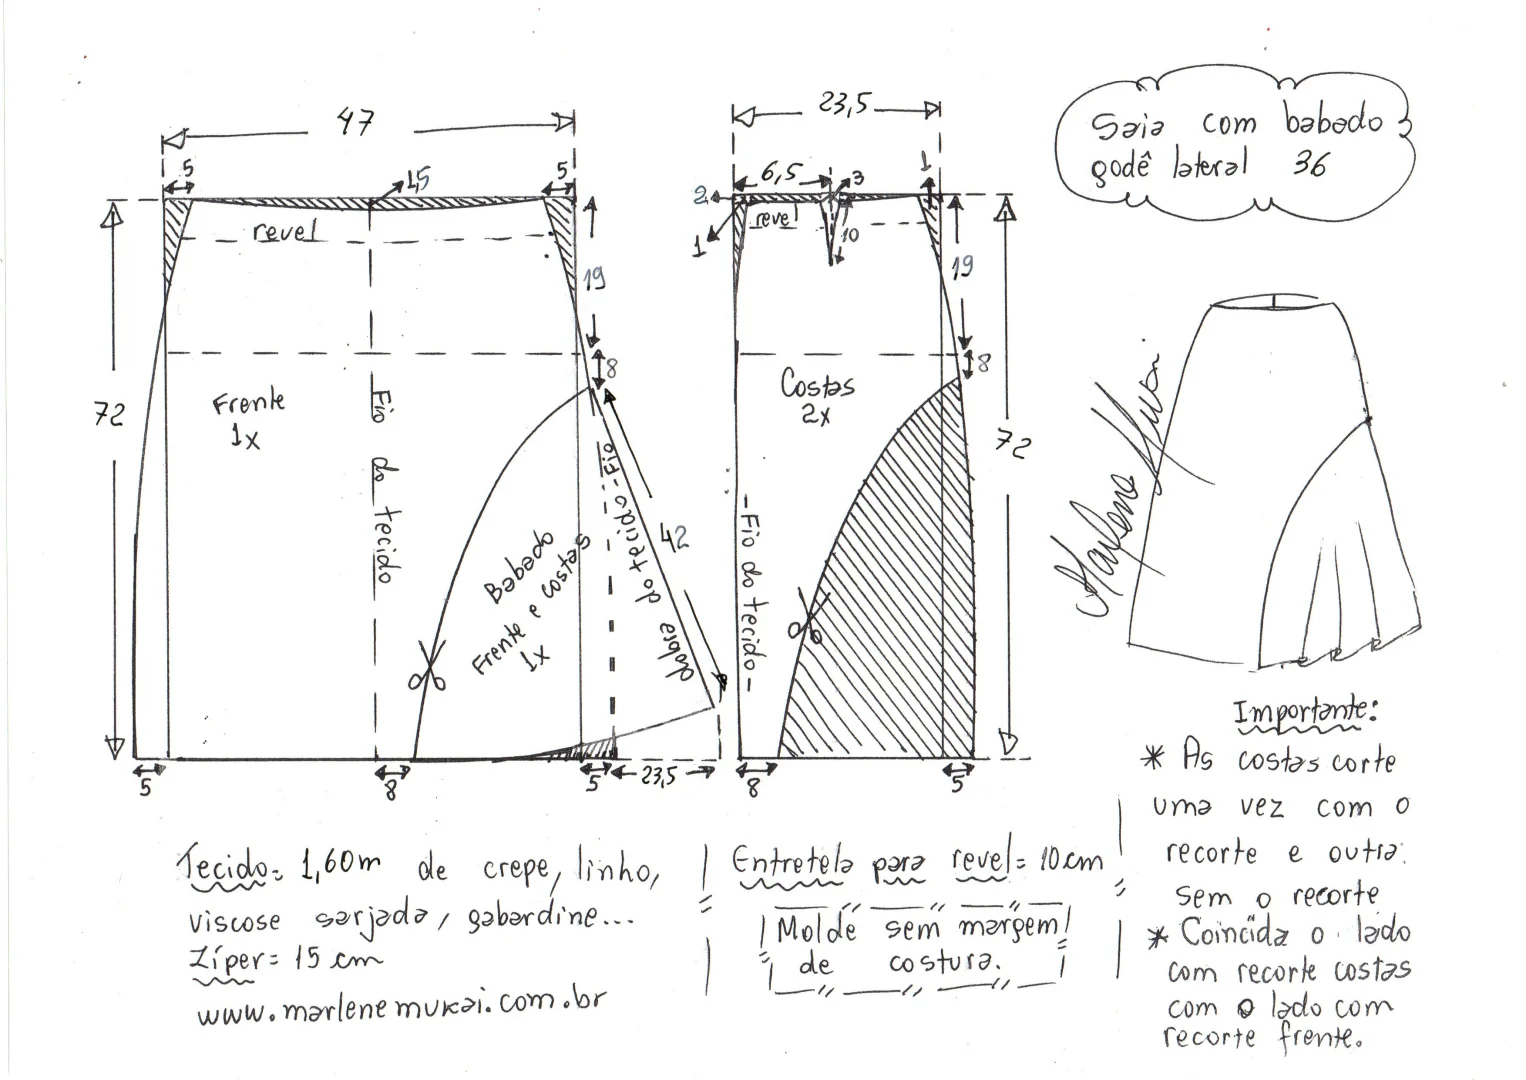 Saia com babado
godê lateral 36
47
5
1,5
5
revel
19
8
72
Frente
1x
Fio do tecido
Fio do tecido
42
Babado
Frente e costas
1x
dobra
5
8
5
23,5
23,5
6,5
3
1
2
1
revel
10
19
8
Costas
2x
72
Fio do tecido
8
5
Marlene Mukai
Importante:
* As costas corte
uma vez com o
recorte e outra
sem o recorte
* Coincida o lado
com recorte costas
com o lado com
recorte frente.
Tecido= 1,60m de crepe, linho,
viscose sarjada, gabardine...
Zíper= 15 cm
www.marlenemukai.com.br
Entretela para revel= 10 cm
Molde sem margem
de costura.